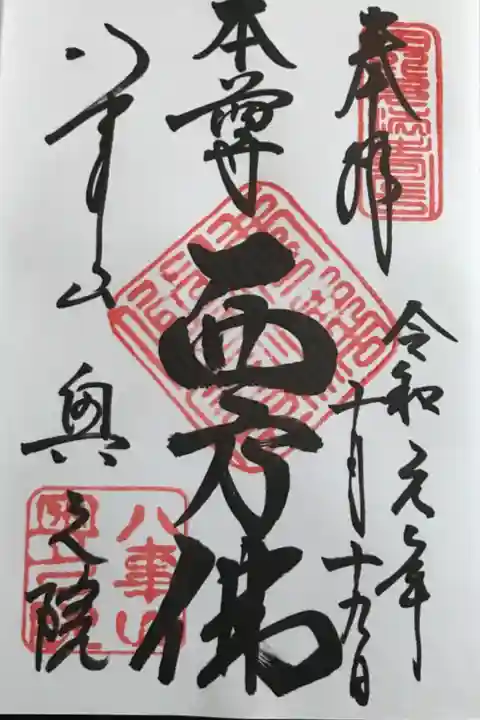 奉拝
令和元年
十月十九日
本尊
西方佛
八事山
奥之院
八事山